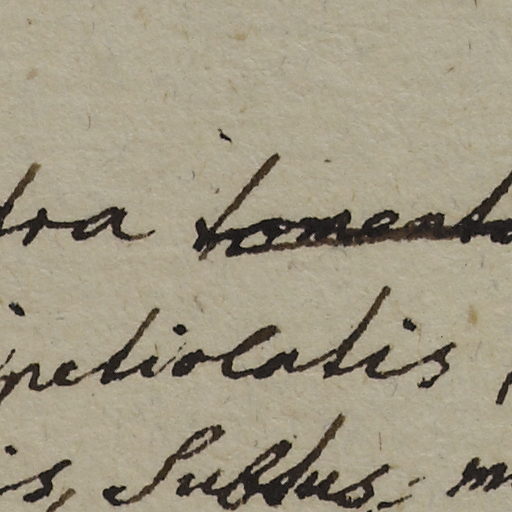 dra tomento
petiolatis
is, Subtus, m